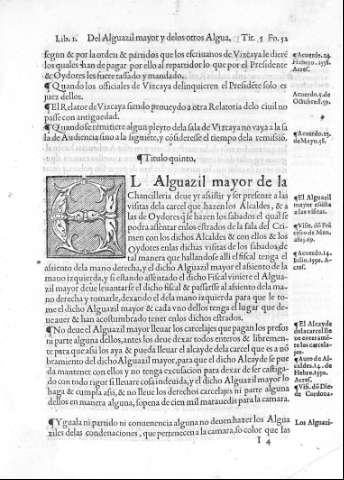 Lib. 1. Del Alguazil mayor y delos otros Algua, Tit. 5 Fo. 52
segun & por la orden & partidos que los escriuanos de Vizcaya le dierẽ
los quales han de pagar por ello al repartidor lo que por el Presidente
& Oydores les fuere tassado y mandado.
¶Quando los officiales de Vizcaya delinquieren el Presidẽte solo es
juez dellos.
¶El Relator de Vizcaya siendo proueydo a otra Relatoria delo ciuil no
passe con antiguedad.
¶Quando se remitiere algun pleyto dela sala de Vizcaya no vaya a la sa
la de Audiencia sino a la siguiẽte, y cõsideresse el tiempo dela remissiõ.
¶Titulo quinto.
EL Alguazil mayor de la
Chancilleria deue yr a sistir y ser presente a las
visitas dela carcel que hazen los Alcaldes, & a
las de Oydores q̃ se hazen los sabados el qual se
podra assentar enlos estrados de la sala del Cri
men con los dichos Alcaldes & con ellos & los
Oydores enlas dichas visitas de los sabados, de
tal manera que hallandose alli el fiscal tenga el
assiento dela mano derecha, y el dicho Alguazil mayor el assiento de la
mano izquierda, y si estando assentado el dicho Fiscal viniere el Algua-
zil mayor deue leuantarse el dicho fiscal & passarse al assiento dela ma
no derecha y tomarle, dexando el dela mano izquierda para que le to-
me el dicho Alguazil mayor & cada vno dellos tenga el lugar que de-
uen auer & han acostumbrado tener enlos dichos estrados.
¶No deue el Alguazil mayor lleuar los carcelajes que pagan los presos
ni parte alguna dellos, antes los deue dexar todos enteros & libremen-
te para que assi los aya & pueda lleuar el alcayde dela carcel que es a nõ
bramiento del dicho Alguazil mayor, para que el dicho Alcayde se pue
da mantener con ellos y no tenga escusacion para dexar de ser castiga-
do con todo rigor si lleuare cosa indeuida, y el dicho Alguazil mayor lo
haga & cumpla assi, & no lleue los derechos carcelajes ni parte alguna
dellos en manera alguna, so pena de cien mil marauedis para la camara.
¶Yguala ni partido ni conuenencia alguna no deuen hazer los Algua
ziles delas condenaciones, que pertenecen a la camara, so color que las
I 4
¶Acuerdo.
Acuer.
Acuerdo.
Octubre.
Acuerdo.
de Mayo.
¶El Alguazil
mayor assista
a las visitas.
¶Acuerdo.
Acuer.
¶El Alcayde
dela carcel
Acuer.
¶Vis.
de Cordoua
Los Alguazi-